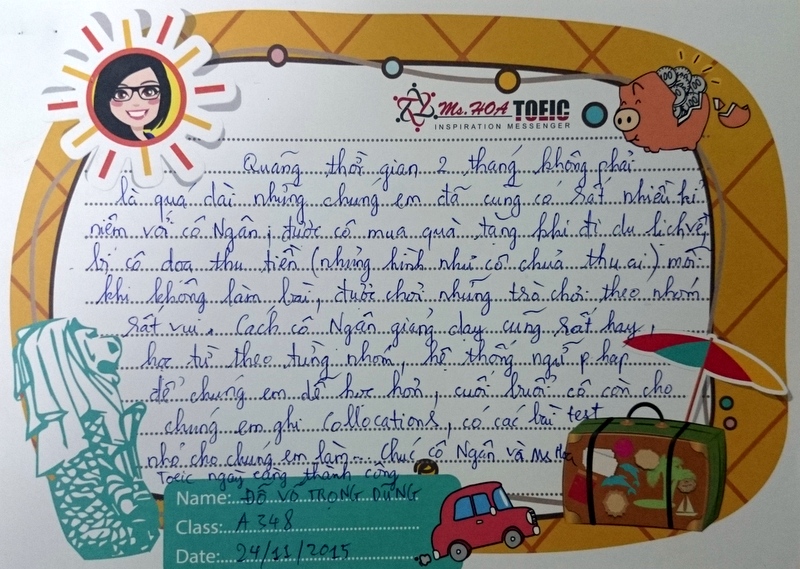 Ms. HOA TOEIC
INSPIRATION MESSENGER
Quãng thời gian 2 tháng không phải
là quá dài nhưng chúng em đã cùng có rất nhiều kỉ
niệm với cô Ngân, được cô mua quà tặng khi đi du lịch về,
bị cô doạ thu tiền (nhưng hình như cô chưa thu ai) mỗi
khi không làm bài, được chơi những trò chơi theo nhóm
rất vui. Cách cô Ngân giảng dạy cũng rất hay,
học từ theo từng nhóm, hệ thống ngữ pháp
để chúng em dễ học hơn, cuối buổi cô còn cho
chúng em ghi Collocations, có các bài test
nhỏ cho chúng em làm... Chúc cô Ngân và Ms Hoa
Toeic ngày càng thành công
Name: ĐỖ VÕ TRỌNG DŨNG
Class: A348
Date: 24/11/2015